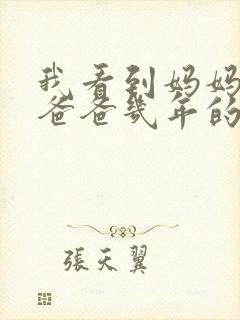 我看到妈妈
爸爸几年的
張天翼